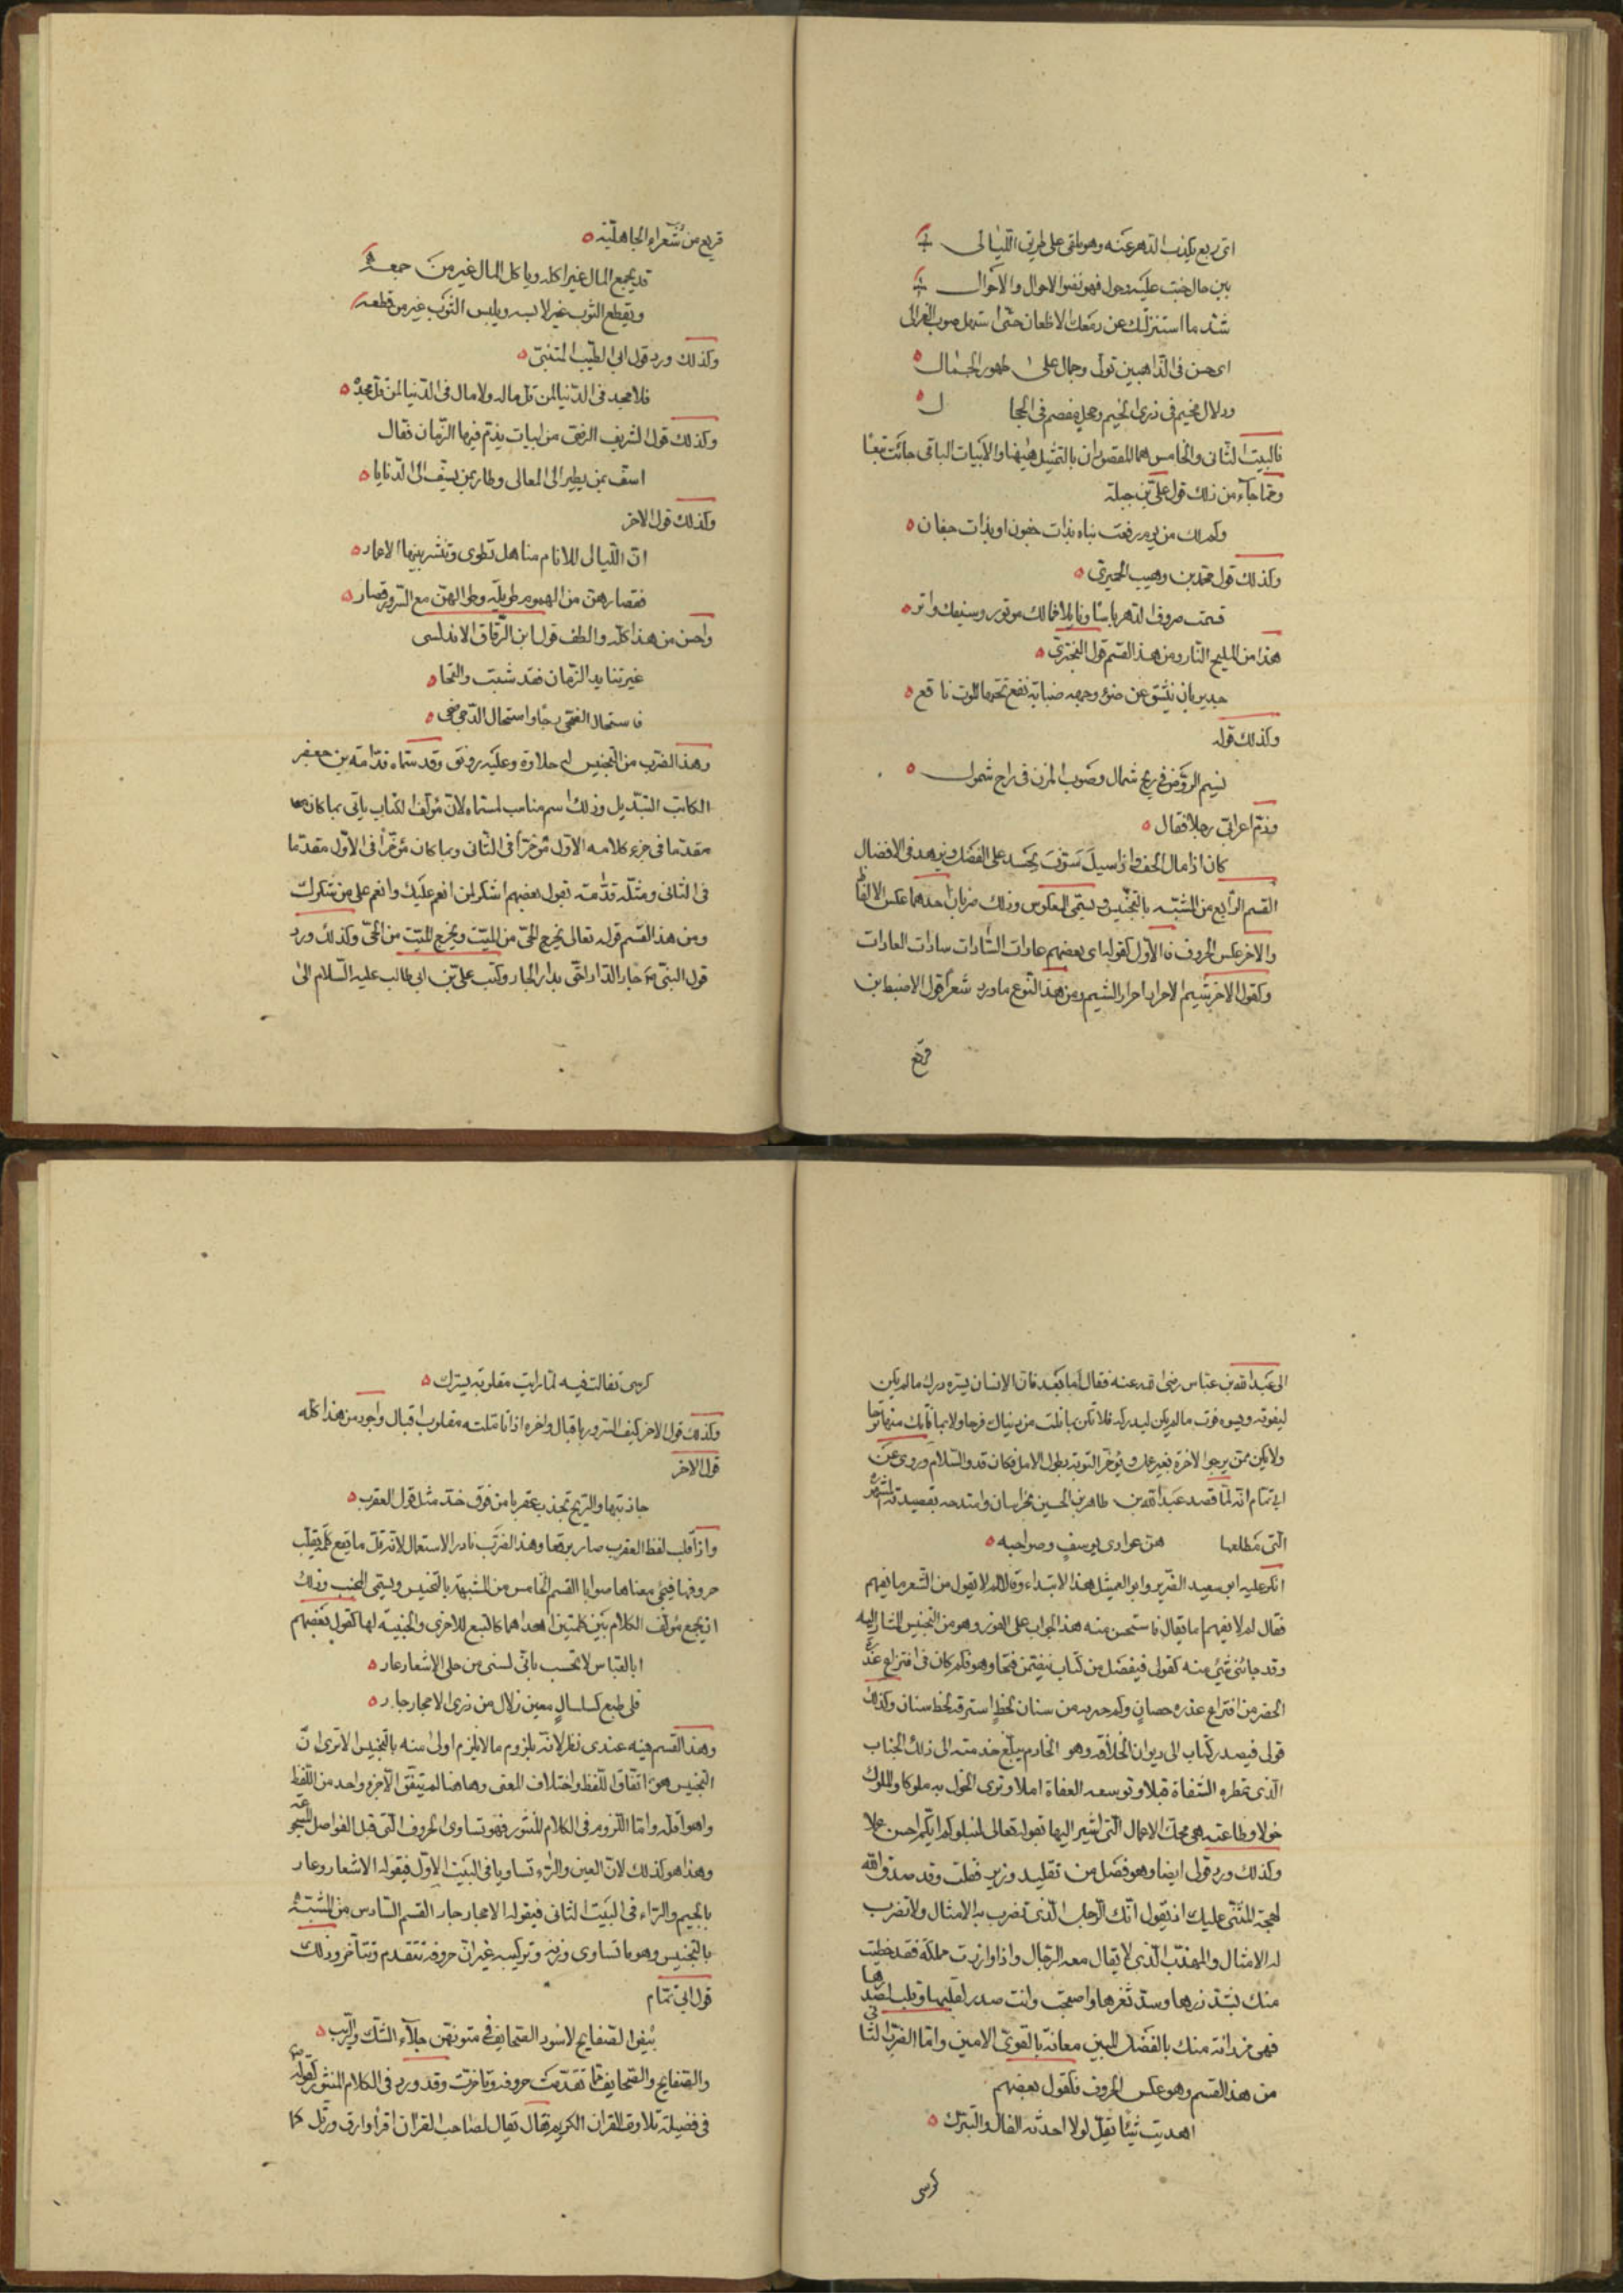 اى ربع يكذب الدهر عنه وهو ملقى على طريق الليالى
بين حال جنت عليه وحول فهو نضو الاحوال والاحوال
شد ما استنزلتك عن دمعك الاظعان حتى استهل صوب العزالى
اى حسن فى الذاهبين تولى وجمال على ظهور الجمال
ودلال مخيم فى ذرى الخيم وحجل مقصم فى الحجا ل
فالبيت الثانى والخامس هما المقصودان بالتمثيل هيهنا والابيات الباقى جائت تبعًا
ومما جاء من ذلك قول على بن جبلة
وكم لك من يوم رفعت بناه بذات جفون او بذات جفان
وكذلك قول محمد بن وهيب الحميرى
قسمت صروف الدهر باسًا ونايلا فمالك موتور وسيفك واتر
هذا من المليح النادر ومن هذا القسم قول البحترى
جدير بان تنشق عن ضوء وجهه ضبابة نقع تحتها الموت ناقع
وكذلك قوله
نسيم الروض فى ريح شمال وصوب المزن فى راح شمول
وذم اعرابى رجلا فقال
كان اذا سال الحف واذا سيل سوّف يحسد على الفضل ويزهد فى الافضال
القسم الرابع من المشبه بالتجنيس ويسمى المعكوس وذلك ضربان احدهما عكس الالفاظ
والاخر عكس الحروف فالاول كقول بعضهم عادات السادات سادات العادات
وكقول الاخر شيم الاحرار احرار الشيم ومن هذا النوع ما ورد شعرا قول الاضبط بن
قريع
قريع من شعراء الجاهلية
قد يجمع المال غير اكله وياكل المال غير من جمعه
ويقطع الثوب غير لابسه ويلبس الثوب غير من قطعه
وكذلك ورد قول ابى الطيب المتنبى
فلا مجد فى الدنيا لمن قل ماله ولا مال فى الدنيا لمن قل مجده
وكذلك قول الشريف الرضى من ابيات يذم فيها الزمان فقال
اسف بمن يطير الى المعالى وطار بمن يسف الى الدنايا
وكذلك قول الاخر
ان الليالى للانام مناهل تطوى وتنشر بينها الاعمار
فقصارهن من الهموم طويلة وطوالهن مع السرور قصار
واحسن من هذا كله والطف قول ابن الزقاق الاندلسى
غيرتنا يد الزمان فقد شبت والتحا
فاستحال الضحى دجًا واستحال الدجى ضحى
وهذا الضرب من التجنيس له حلاوة وعليه رونق وقد سماه قدامة بن جعفر
الكاتب التبديل وذلك اسم مناسب لمسماه لان مؤلف الكتاب ياتى بما كان
مقدما فى جزء كلامه الاول مؤخرًا فى الثانى وبما كان مؤخرا فى الاول مقدما
فى الثانى ومثله قدامة بقول بعضهم اشكر لمن انعم عليك وانعم على من شكرك
ومن هذا القسم قوله تعالى يخرج الحى من الميت ويخرج الميت من الحى وكذلك ورد
قول النبى جار الدار احق بدار الجار وكتب على بن ابى طالب عليه السلام الى
الى عبد الله بن عباس رضى الله عنه فقال اما بعد فان الانسان يسره درك ما لم يكن
ليفوته ويسوه فوت ما لم يكن ليدركه فلا تكن بما نلت من دنياك فرحا ولا بما فاتك منها ترحا
ولا تكن ممن يرجو الاخرة بغير عمل ويؤخر التوبة بطول الامل فكان قد والسلام وروى عن
ابى تمام انه لما قصد عبد الله بن طاهر بن الحسين بخراسان وامتدحه بقصيدته المشهورة
التى مطلعها هن عوادى يوسف وصواحبه
انكر عليه ابو سعيد الضرير وابو العميثل هذا الابتداء وقالا له لم لا يقول من الشعر ما يفهم
فقال لم لا تفهم ما يقال فاستحسن منه هذا الجواب على الفور وهو من التجنيس المشار اليه
وقد جائنى شئ منه كقولى فى فصل من كتاب يتضمن فتحا وهو فكم كان فى افتراع عذرة
الحضر من افتراع عذره حصان وكم حد به من سنان لحظ استرقه لحظ سنان وكذلك
قولى فى صدر كتاب الى ديوان الخلافة وهو الخادم يبلغ خدمته الى ذلك الجناب
الذى تمطره الشفاة قبلا وتوسعه العفاة املا وترى الخول به ملوكا والملوك
خولا وطاعته هى محك الاعمال التى اشير اليها بقوله تعالى لنبلوكم ايكم احسن عملا
وكذلك ورد قولى ايضا وهو فصل من تقليد وزير فقلت وقد صدق الله
لهجة المثنى عليك اذ يقول انك الرجل الذى تضرب به الامثال ولا تضرب
له الامثال والمهذب الذى لا يقال معه الرجال واذا وازرت مملكة فقد حظيت
منك بشد ازرها وسد ثغرها واصبحت وانت صدر لقلبها وقلب لصدرها
فهى مزدانة منك بالفضل المبين معانة بالقوى الامين واما الضرب الثانى
من هذا القسم وهو عكس الحروف فكقول بعضهم
اهديت شيئا يقل لولا احدثه الفال والتبرك
كرسى
كرسى تفالت فيه لما رايت مقلوبه يسرك
وكذلك قول الاخر كيف السرور باقبال واخره اذا تاملته مقلوب اقبال واجود من هذا كله
قول الاخر
جاذبتها والريح تجذب عقربا من فوق خد مثل قول العقرب
واذا قلب لفظ العقرب صار برقعا وهذا الضرب نادر الاستعمال لانه قل ما يقع كلمة يقلب
حروفها فيجئ معناها صوابا القسم الخامس من المشبه بالتجنيس ويسمى المجنب وذلك
ان يجمع مؤلف الكلام بين كلمتين احداهما كالتبع للاخرى والجنيبة لها كقول بعضهم
ابا العباس لا تحسب بانى لسنى من حلى الاشعار عار
فلى طبع كسلسال معين زلال من ذرى الاحجار جار
وهذا القسم فيه عندى نظر لانه بلزوم ما لا يلزم اولى منه بالتجنيس الا ترى ان
التجنيس هو اتفاق اللفظ واختلاف المعنى وهاهنا لم يتفق الا جزء واحد من اللفظ
وهو اقله واما اللزوم فى الكلام المنثور فهو تساوى الحروف التى قبل الفواصل المسجوعة
وهذا هو كذلك لان العين والراء تساويا فى البيت الاول فى قوله الاشعار وعار
بالجيم والراء فى البيت الثانى فى قوله الاحجار جار القسم السادس من المشبه
بالتجنيس وهو ما تساوى وزنه وتركيبه غير ان حروفه تتقدم وتتأخر وذلك
قول ابى تمام
بيض الصفايح لا سود الصحايف فى متونهن جلاء الشك والريب
والصفايح والصحايف مما تقدمت حروفه وتاخرت وقد ورد فى الكلام المنثور كقوله
فى فضيلة تلاوة القران الكريم يقال يقال لصاحب القران اقرأ وارق ورتل كما